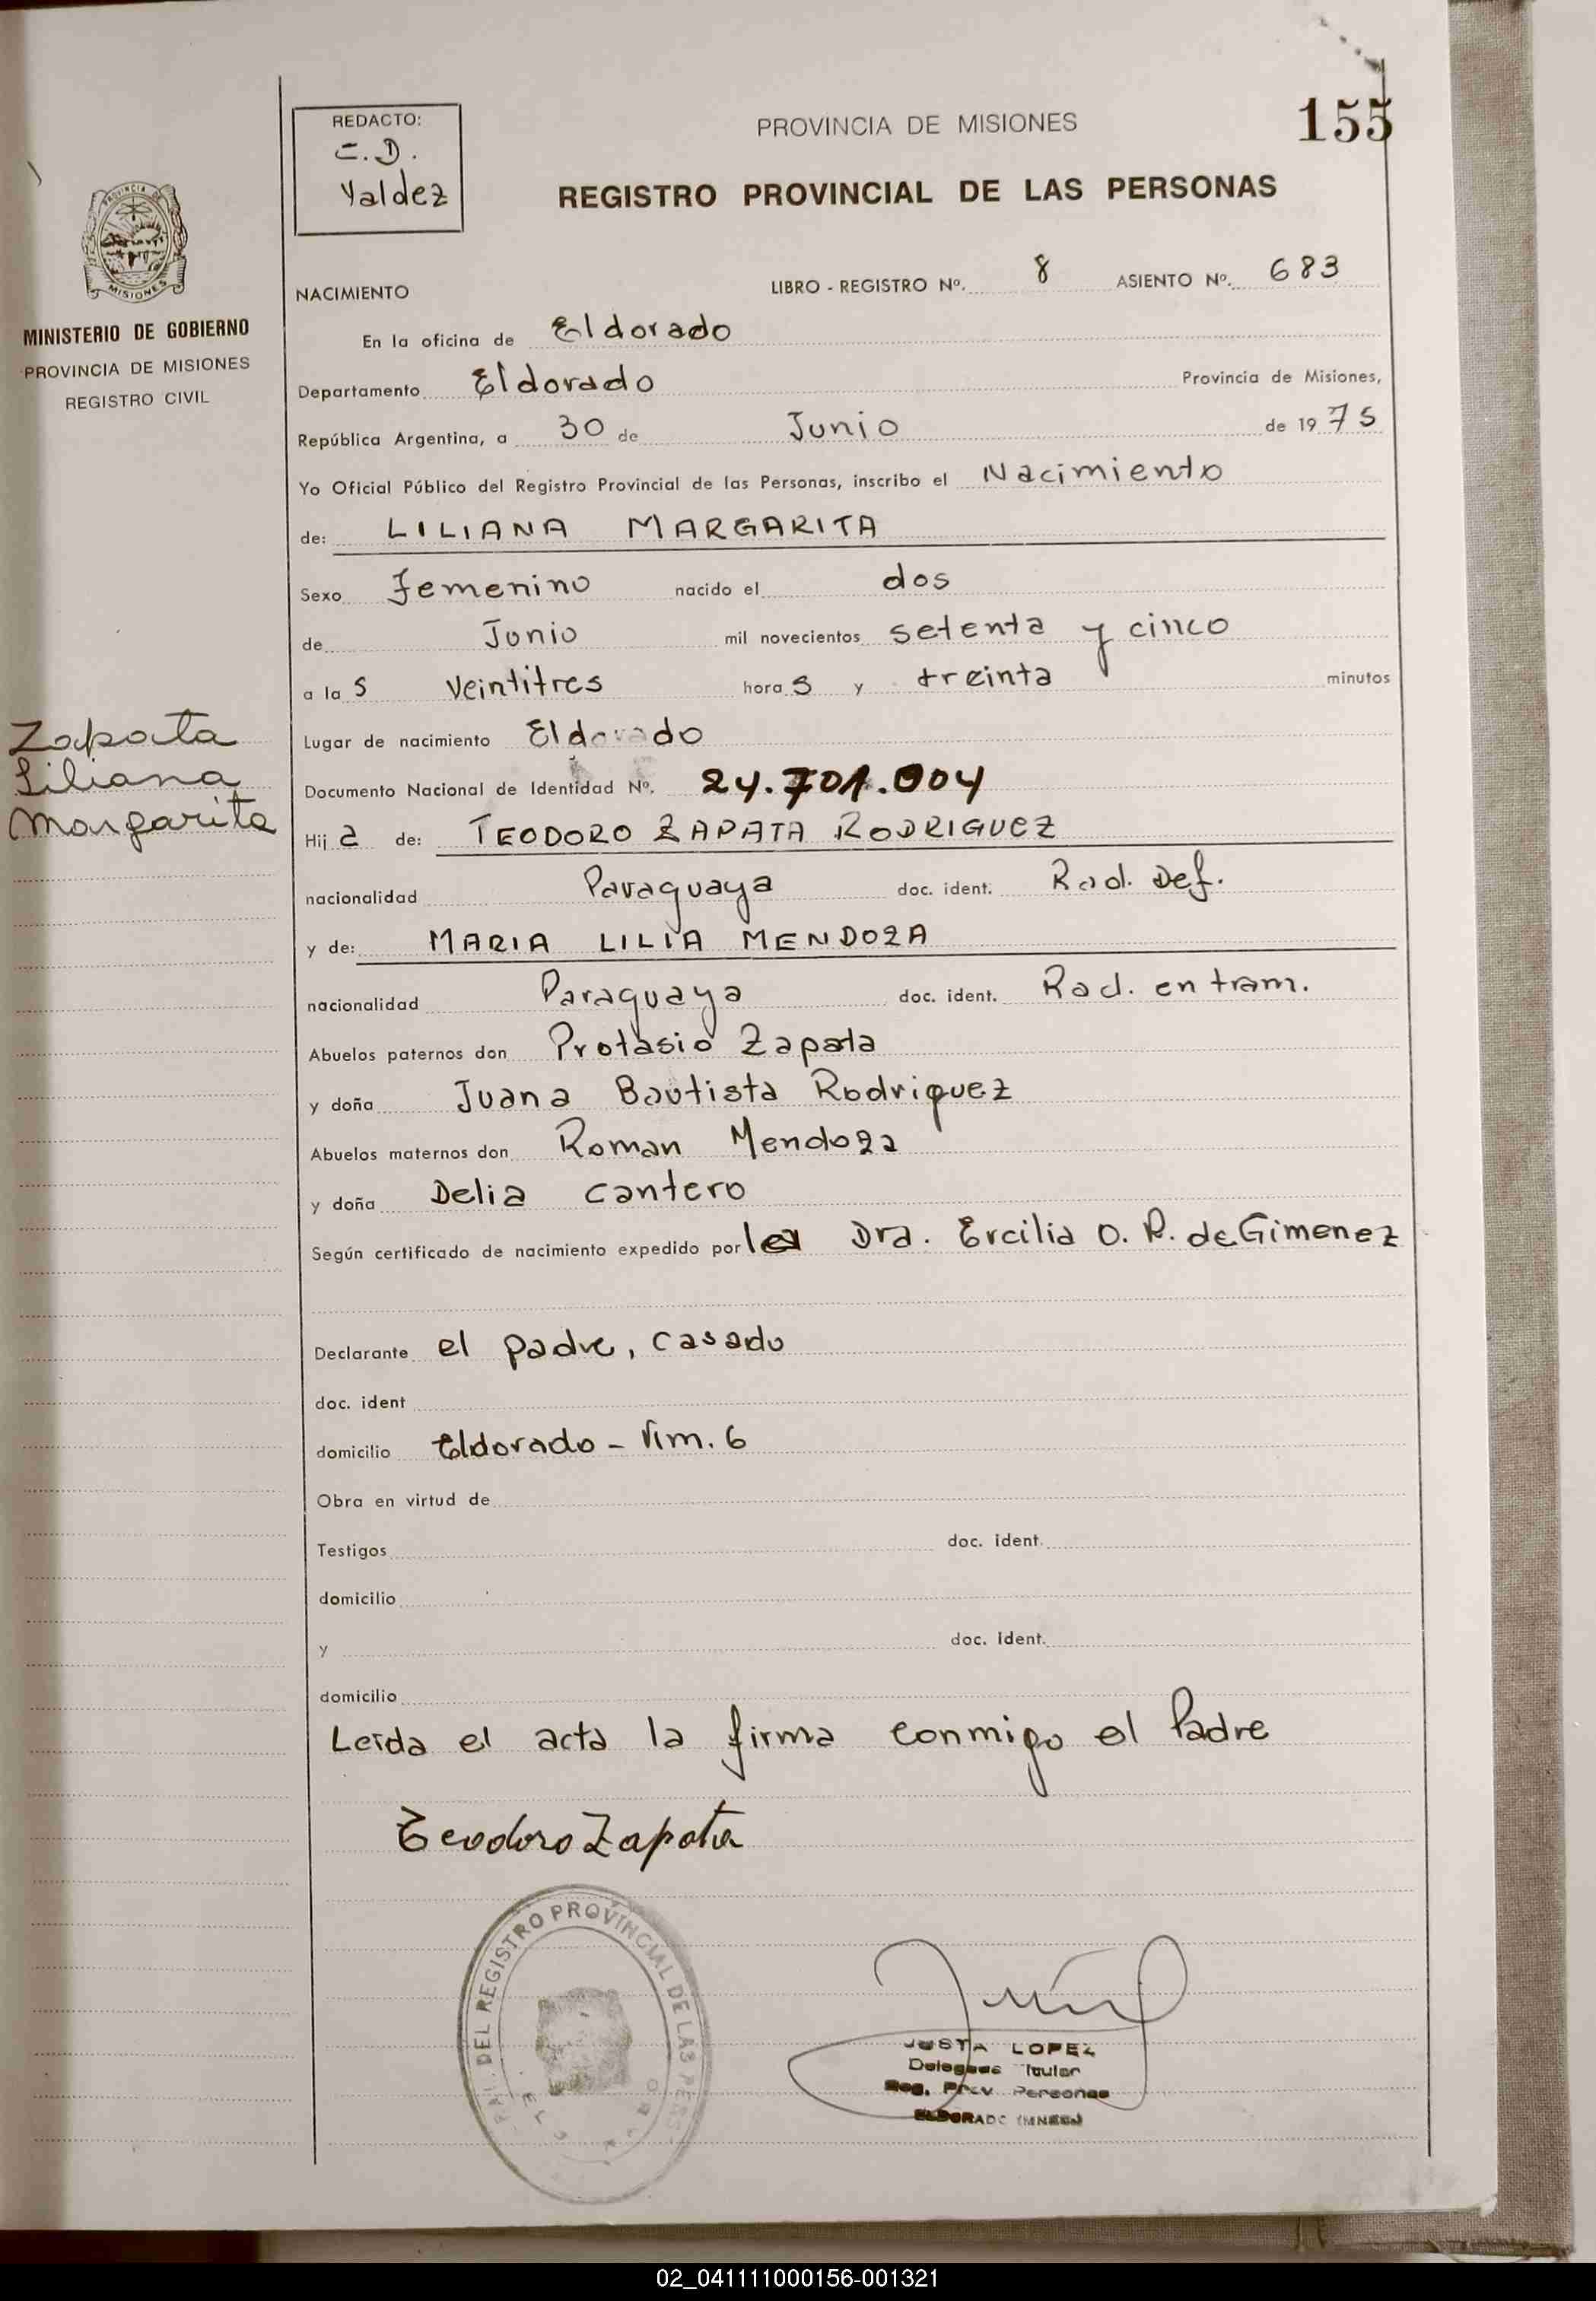 155
REDACTO:
C.D.
Valdez
PROVINCIA DE MISIONES
REGISTRO PROVINCIAL DE LAS PERSONAS
MISIONES
MINISTERIO DE GOBIERNO
PROVINCIA DE MISIONES
REGISTRO CIVIL
NACIMIENTO LIBRO - REGISTRO Nº. 8 ASIENTO Nº. 683
En la oficina de Eldorado
Departamento Eldorado Provincia de Misiones,
República Argentina, a 30 de Junio de 1975
Yo Oficial Público del Registro Provincial de las Personas, inscribo el Nacimiento
de: LILIANA MARGARITA
Sexo Femenino nacido el dos
de Junio mil novecientos setenta y cinco
a las veintitres horas y treinta minutos
Zapata
Liliana
Margarita
Lugar de nacimiento Eldorado
Documento Nacional de Identidad Nº. 24.701.004
Hija de: TEODORO ZAPATA RODRIGUEZ
nacionalidad Paraguaya doc. ident. Rad. Def.
y de: MARIA LILIA MENDOZA
nacionalidad Paraguaya doc. ident. Rad. en tram.
Abuelos paternos don Protasio Zapata
y doña Juana Bautista Rodriguez
Abuelos maternos don Roman Mendoza
y doña Delia Cantero
Según certificado de nacimiento expedido por la Dra. Ercilia O. R. de Gimenez
Declarante el padre, casado
doc. ident
domicilio Eldorado - Km. 6
Obra en virtud de
Testigos doc. ident.
domicilio
y doc. ident.
domicilio
Leida el acta la firma conmigo el Padre
Teodoro Zapata
DEL REGISTRO PROVINCIAL DE LAS PERS
JUSTA LOPEZ
Delegada Titular
Reg. Prov. Personas
ELDORADO (MNES)
02_041111000156-001321